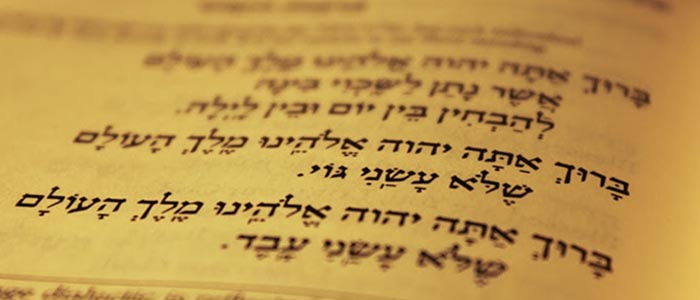 בָּרוּךְ אַתָּה יהוה אֱלֹהֵינוּ מֶלֶךְ הָעוֹלָם
אֲשֶׁר נָתַן לַשֶּׂכְוִי בִינָה
לְהַבְחִין בֵּין יוֹם וּבֵין לָיְלָה.
בָּרוּךְ אַתָּה יהוה אֱלֹהֵינוּ מֶלֶךְ הָעוֹלָם
שֶׁלֹּא עָשַׂנִי גּוֹי.
בָּרוּךְ אַתָּה יהוה אֱלֹהֵינוּ מֶלֶךְ הָעוֹלָם
שֶׁלֹּא עָשַׂנִי עָבֶד.